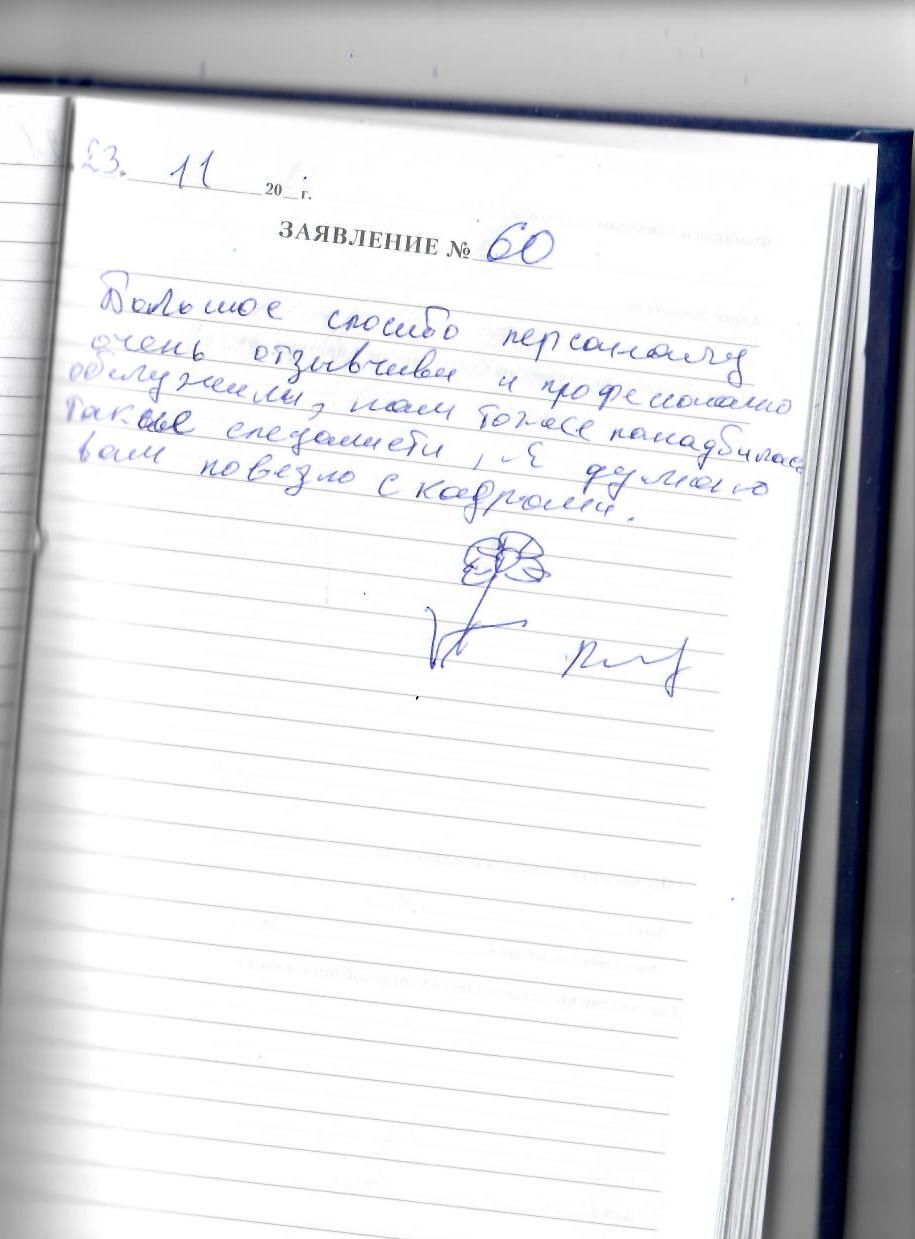 23. 11 20 г.
ЗАЯВЛЕНИЕ № 60
Большое спосибо персоналу
очень отзывчивы и професионально
облужили, нам тоже панадбилась
такие специалисти, Я думаю
вам повезло с кадрами.